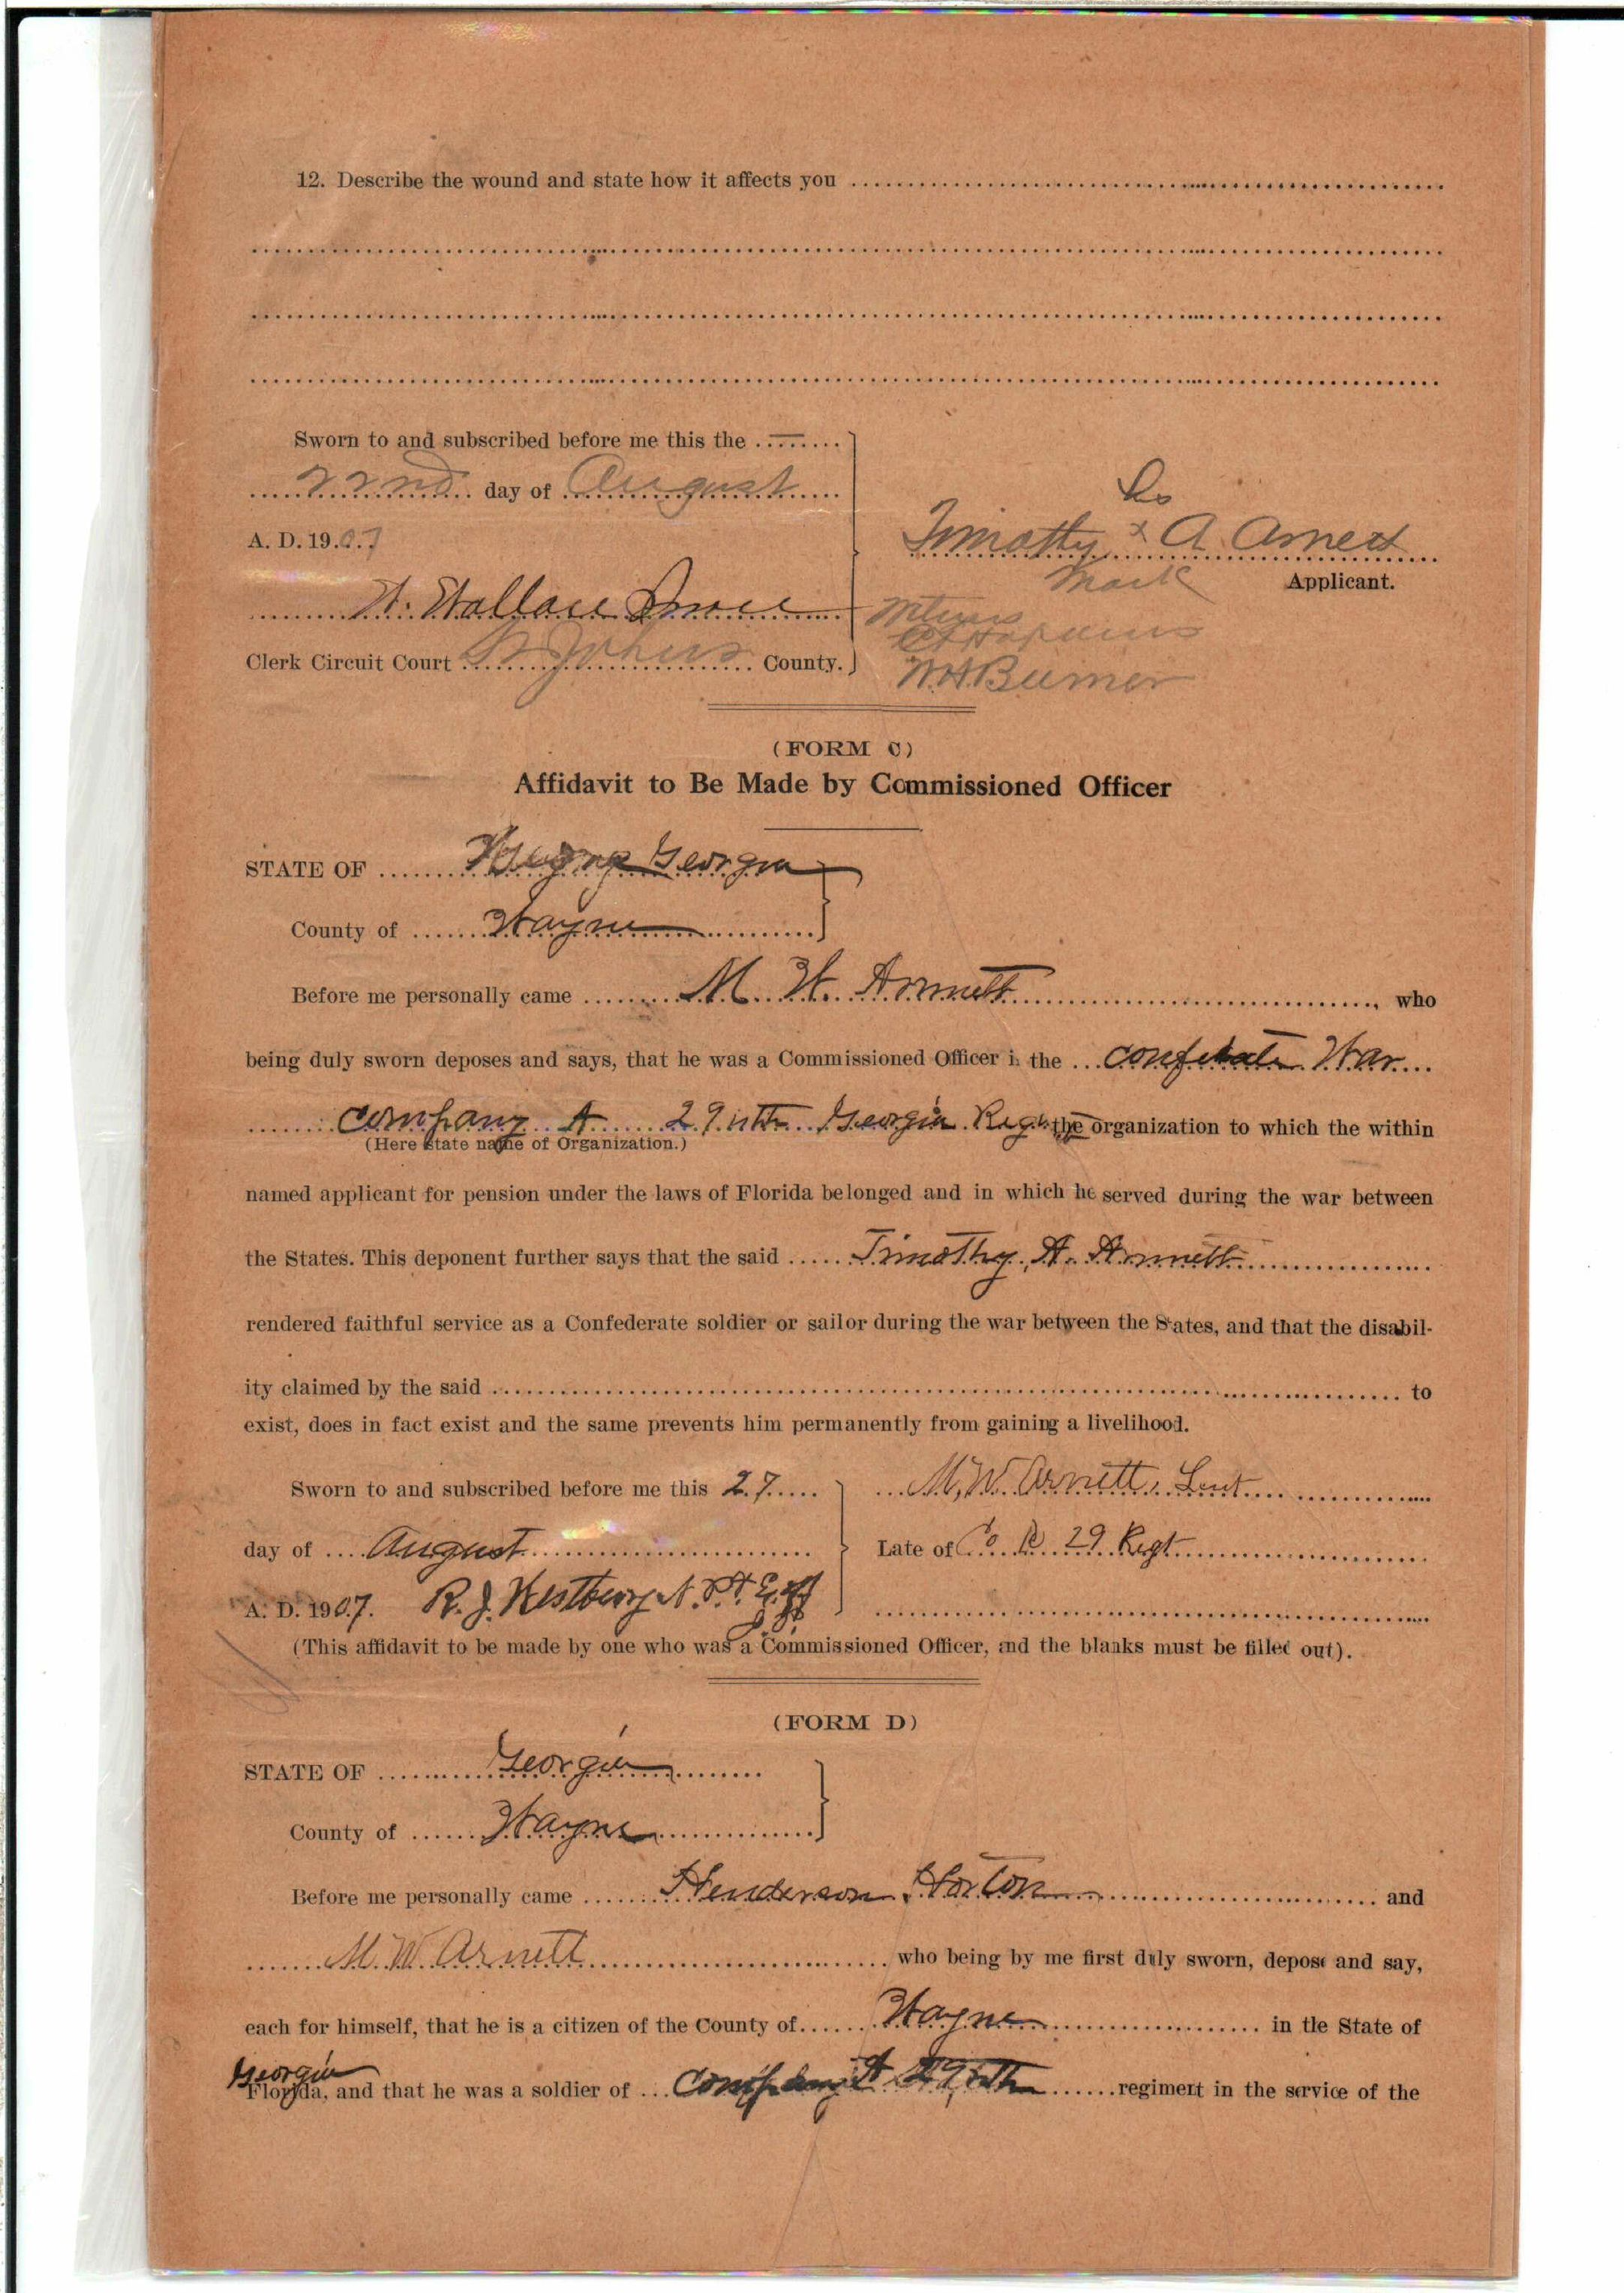 12. Describe the wound and state how it affects you
Sworn to and subscribed before me this the
22nd day of August
A. D. 1907
W. Wallace
Clerk Circuit Court St Johns County.
his
Timothy x A Arnett
mark
Applicant.
Witness
W.H. Bumer
(FORM C)
Affidavit to Be Made by Commissioned Officer
STATE OF Georgia
County of Wayne
Before me personally came M. W. Arnnett, who
being duly sworn deposes and says, that he was a Commissioned Officer in the War
Company A 29nth Georgia Reg. the organization to which the within
(Here state name of Organization.)
named applicant for pension under the laws of Florida belonged and in which he served during the war between
the States. This deponent further says that the said Timothy A. Arnnett
rendered faithful service as a Confederate soldier or sailor during the war between the States, and that the disabil-
ity claimed by the said to
exist, does in fact exist and the same prevents him permanently from gaining a livelihood.
Sworn to and subscribed before me this 27
day of August
A. D. 1907. R. J.
M. W. Arnett, Leut
Late of Co 29 Regt
(This affidavit to be made by one who was a Commissioned Officer, and the blanks must be filled out).
(FORM D)
STATE OF Georgia
County of Wayne
Before me personally came Henderson Horton and
M. W. Arnett who being by me first duly sworn, depose and say,
each for himself, that he is a citizen of the County of Wayne in the State of
Georgia
Florida, and that he was a soldier of Company A regiment in the service of the